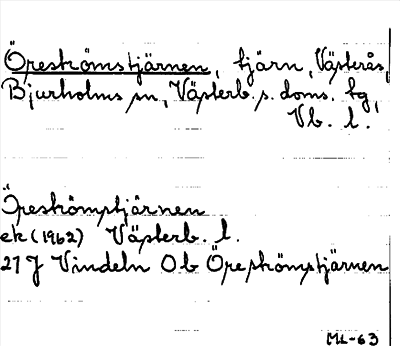 Öreströmstjärnen, tjärn, Västerås,
Bjurholms sn, Västerb. s. doms. tg,
Vb. l.
Öreströmstjärnen
ek (1962) Västerb. l.
21 J Vindeln 0 b Öreströmstjärnen
ML-63